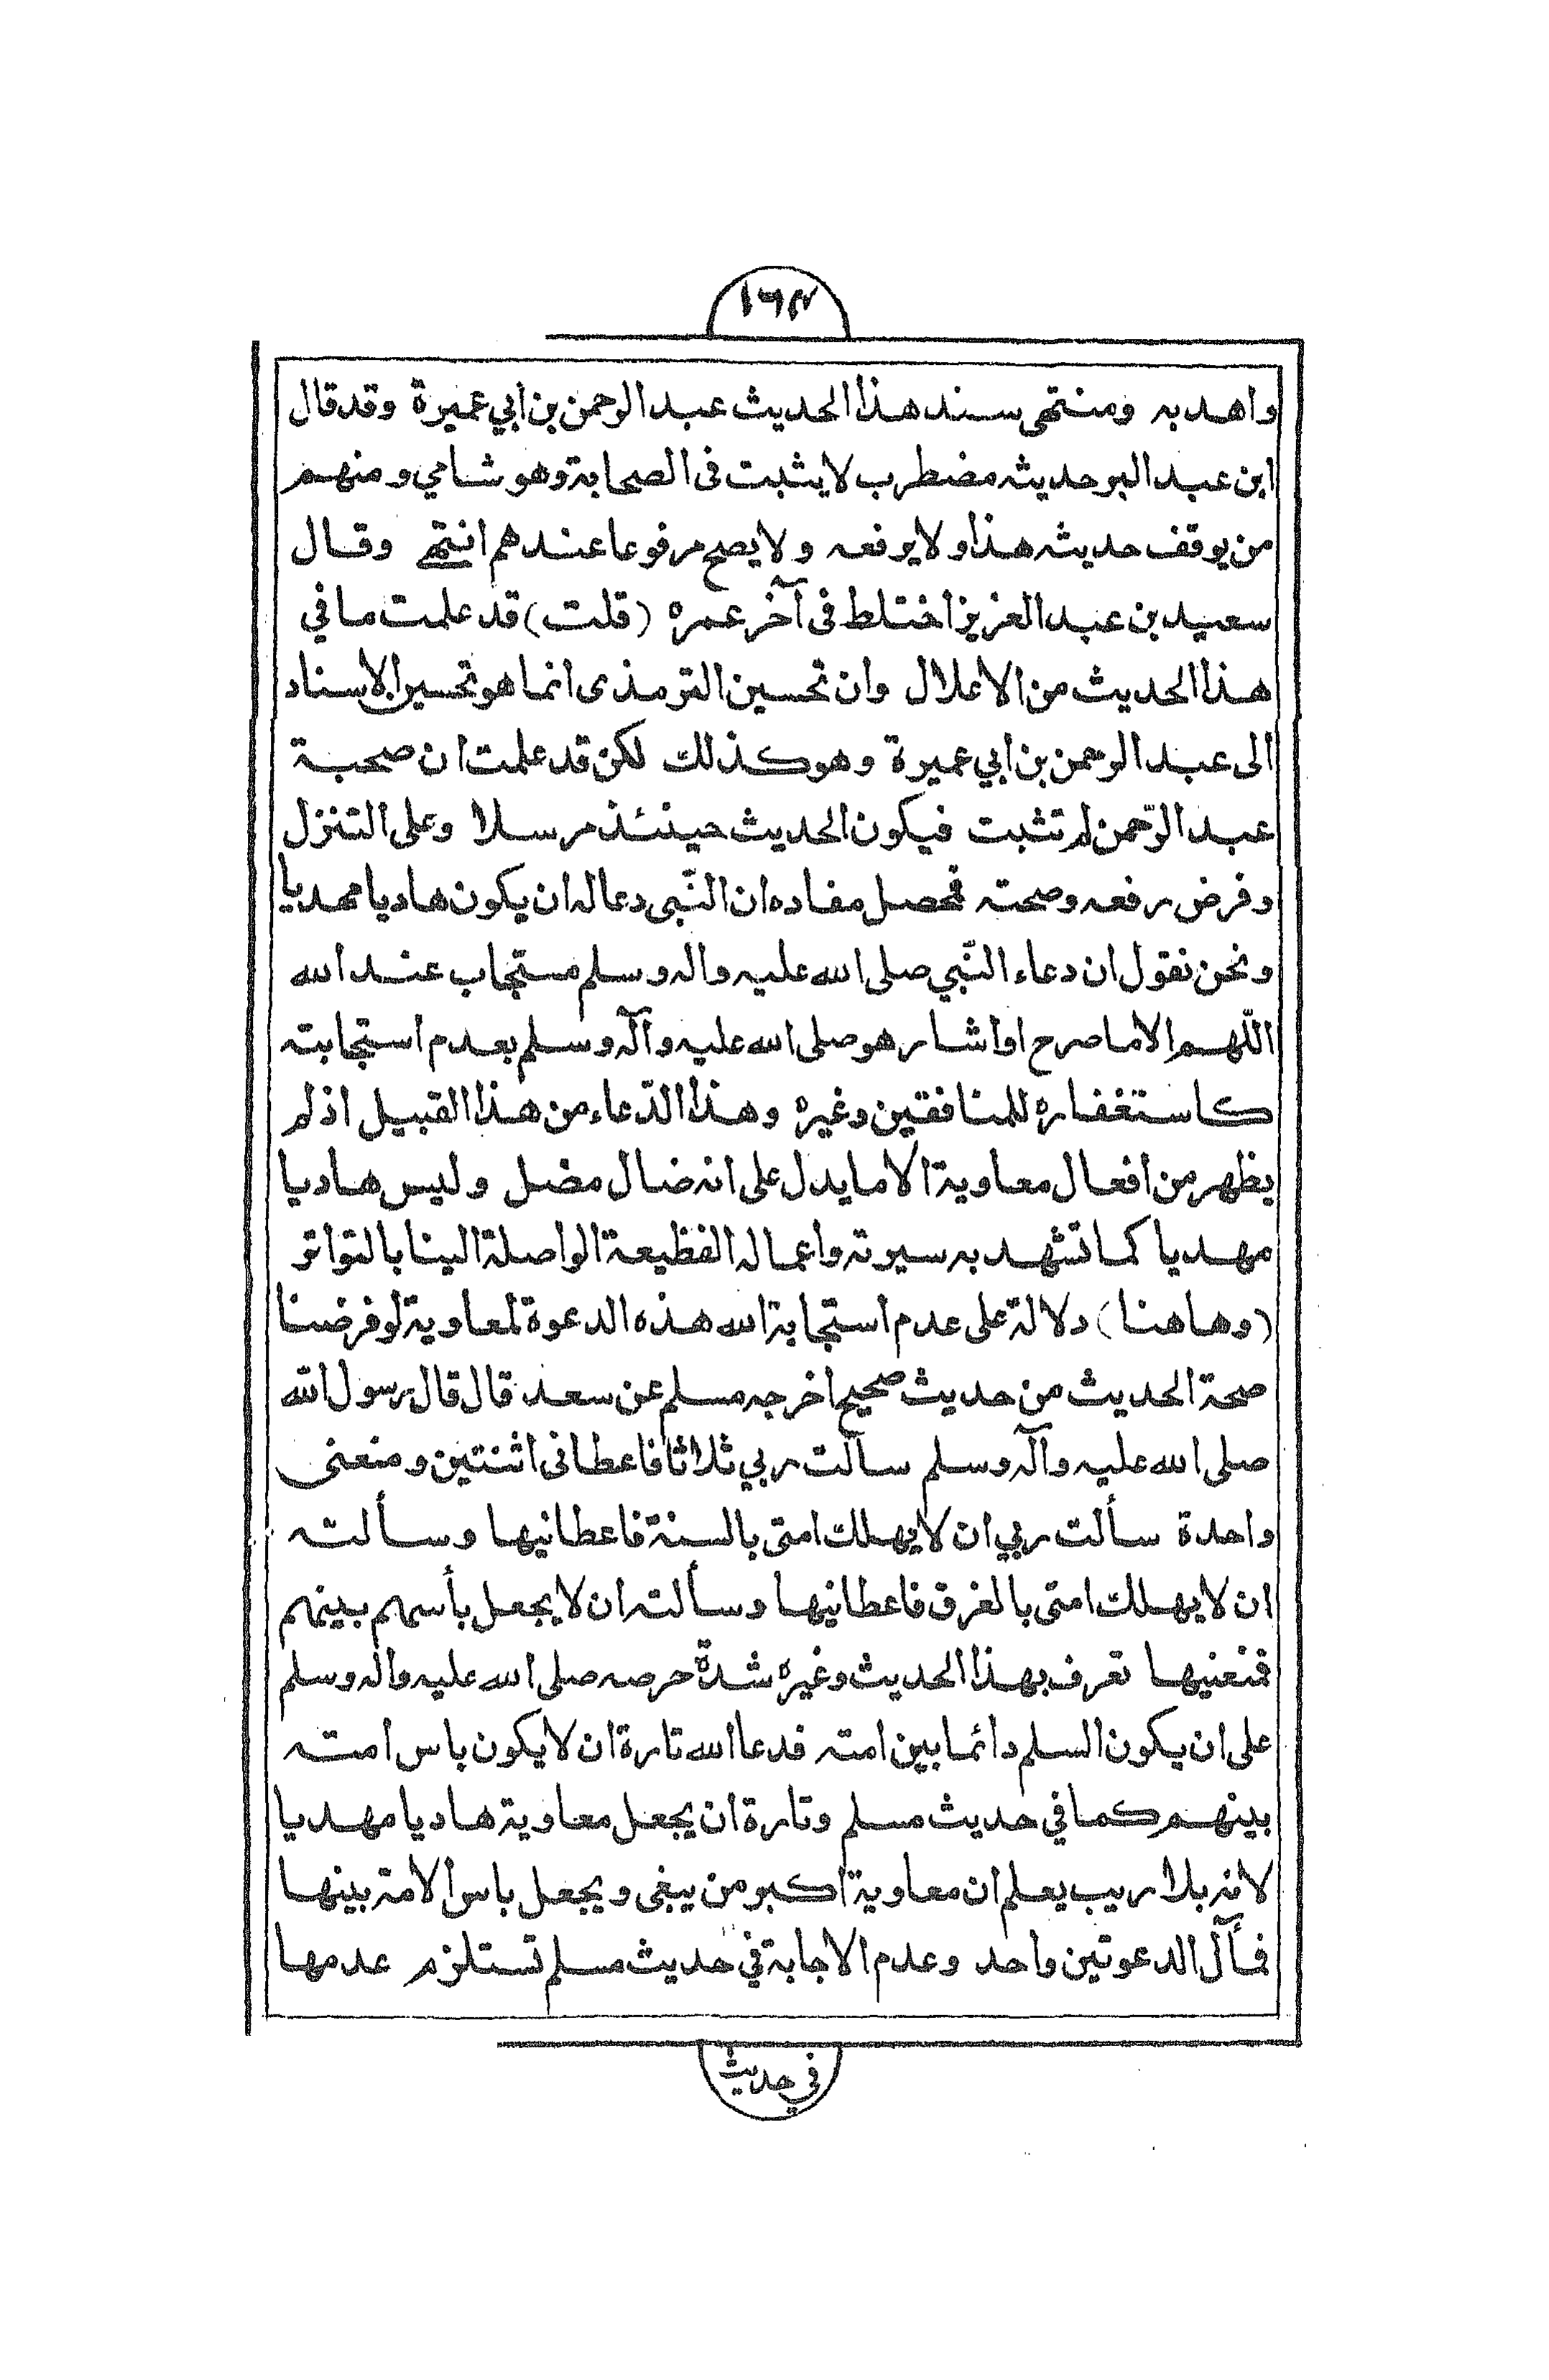 ١٦٤
واهد به ومنتهى سند هذا الحديث عبد الرحمن بن ابي عميرة وقد قال
ابن عبد البر حديثه مضطرب لا يثبت فى الصحابة وهو شامي ومنهم
من يوقف حديثه هذا ولا يرفعه ولا يصح مرفوعا عندهم انتهى وقال
سعيد بن عبد العزيز اختلط فى آخر عمره (قلت) قد علمت ما في
هذا الحديث من الاعلال وان تحسين الترمذى انما هو تحسين الاسناد
الى عبد الرحمن بن ابي عميرة وهو كذلك لكن قد علمت ان صحبة
عبد الرّحمن لم تثبت فيكون الحديث حينئذ مرسلا وعلى التنزل
وفرض رفعه وصحته فحصل مفاده ان النّبى دعا له ان يكون هاديا مهديا
ونحن نقول ان دعاء النّبي صلى الله عليه واله وسلم مستجاب عند الله
اللّهم الا ما صرح او اشار هو صلى الله عليه وآله وسلم بعدم استجابته
كاستغفاره للمنافقين وغيره وهذا الدّعاء من هذا القبيل اذ لم
يظهر من افعال معاوية الا ما يدل على انه ضال مضل وليس هاديا
مهديا كما تشهد به سيرته واعماله الفظيعة الواصلة الينا بالتواتر
(وهاهنا) دلالة على عدم استجابة الله هذه الدعوة لمعاوية لو فرضنا
صحة الحديث من حديث صحيح اخرجه مسلم عن سعد قال قال رسول الله
صلى الله عليه وآله وسلم سالت ربي ثلاثا فاعطانى اثنتين ومنعنى
واحدة سألت ربي ان لا يهلك امتى بالسنة فاعطانيها وسألته
ان لا يهلك امتى بالغرق فاعطانيها وسألته ان لا يجعل بأسهم بينهم
فمنعنيها تعرف بهذا الحديث وغيره شدّة حرصه صلى الله عليه واله وسلم
على ان يكون السلم دائما بين امته فدعا الله تارة ان لا يكون باس امته
بينهم كما في حديث مسلم وتارة ان يجعل معاوية هاديا مهديا
لانه بلا ريب يعلم ان معاوية اكبر من يبغى ويجعل باس الامة بينها
فمآل الدعوتين واحد وعدم الاجابة في حديث مسلم تستلزم عدمها
في حديث